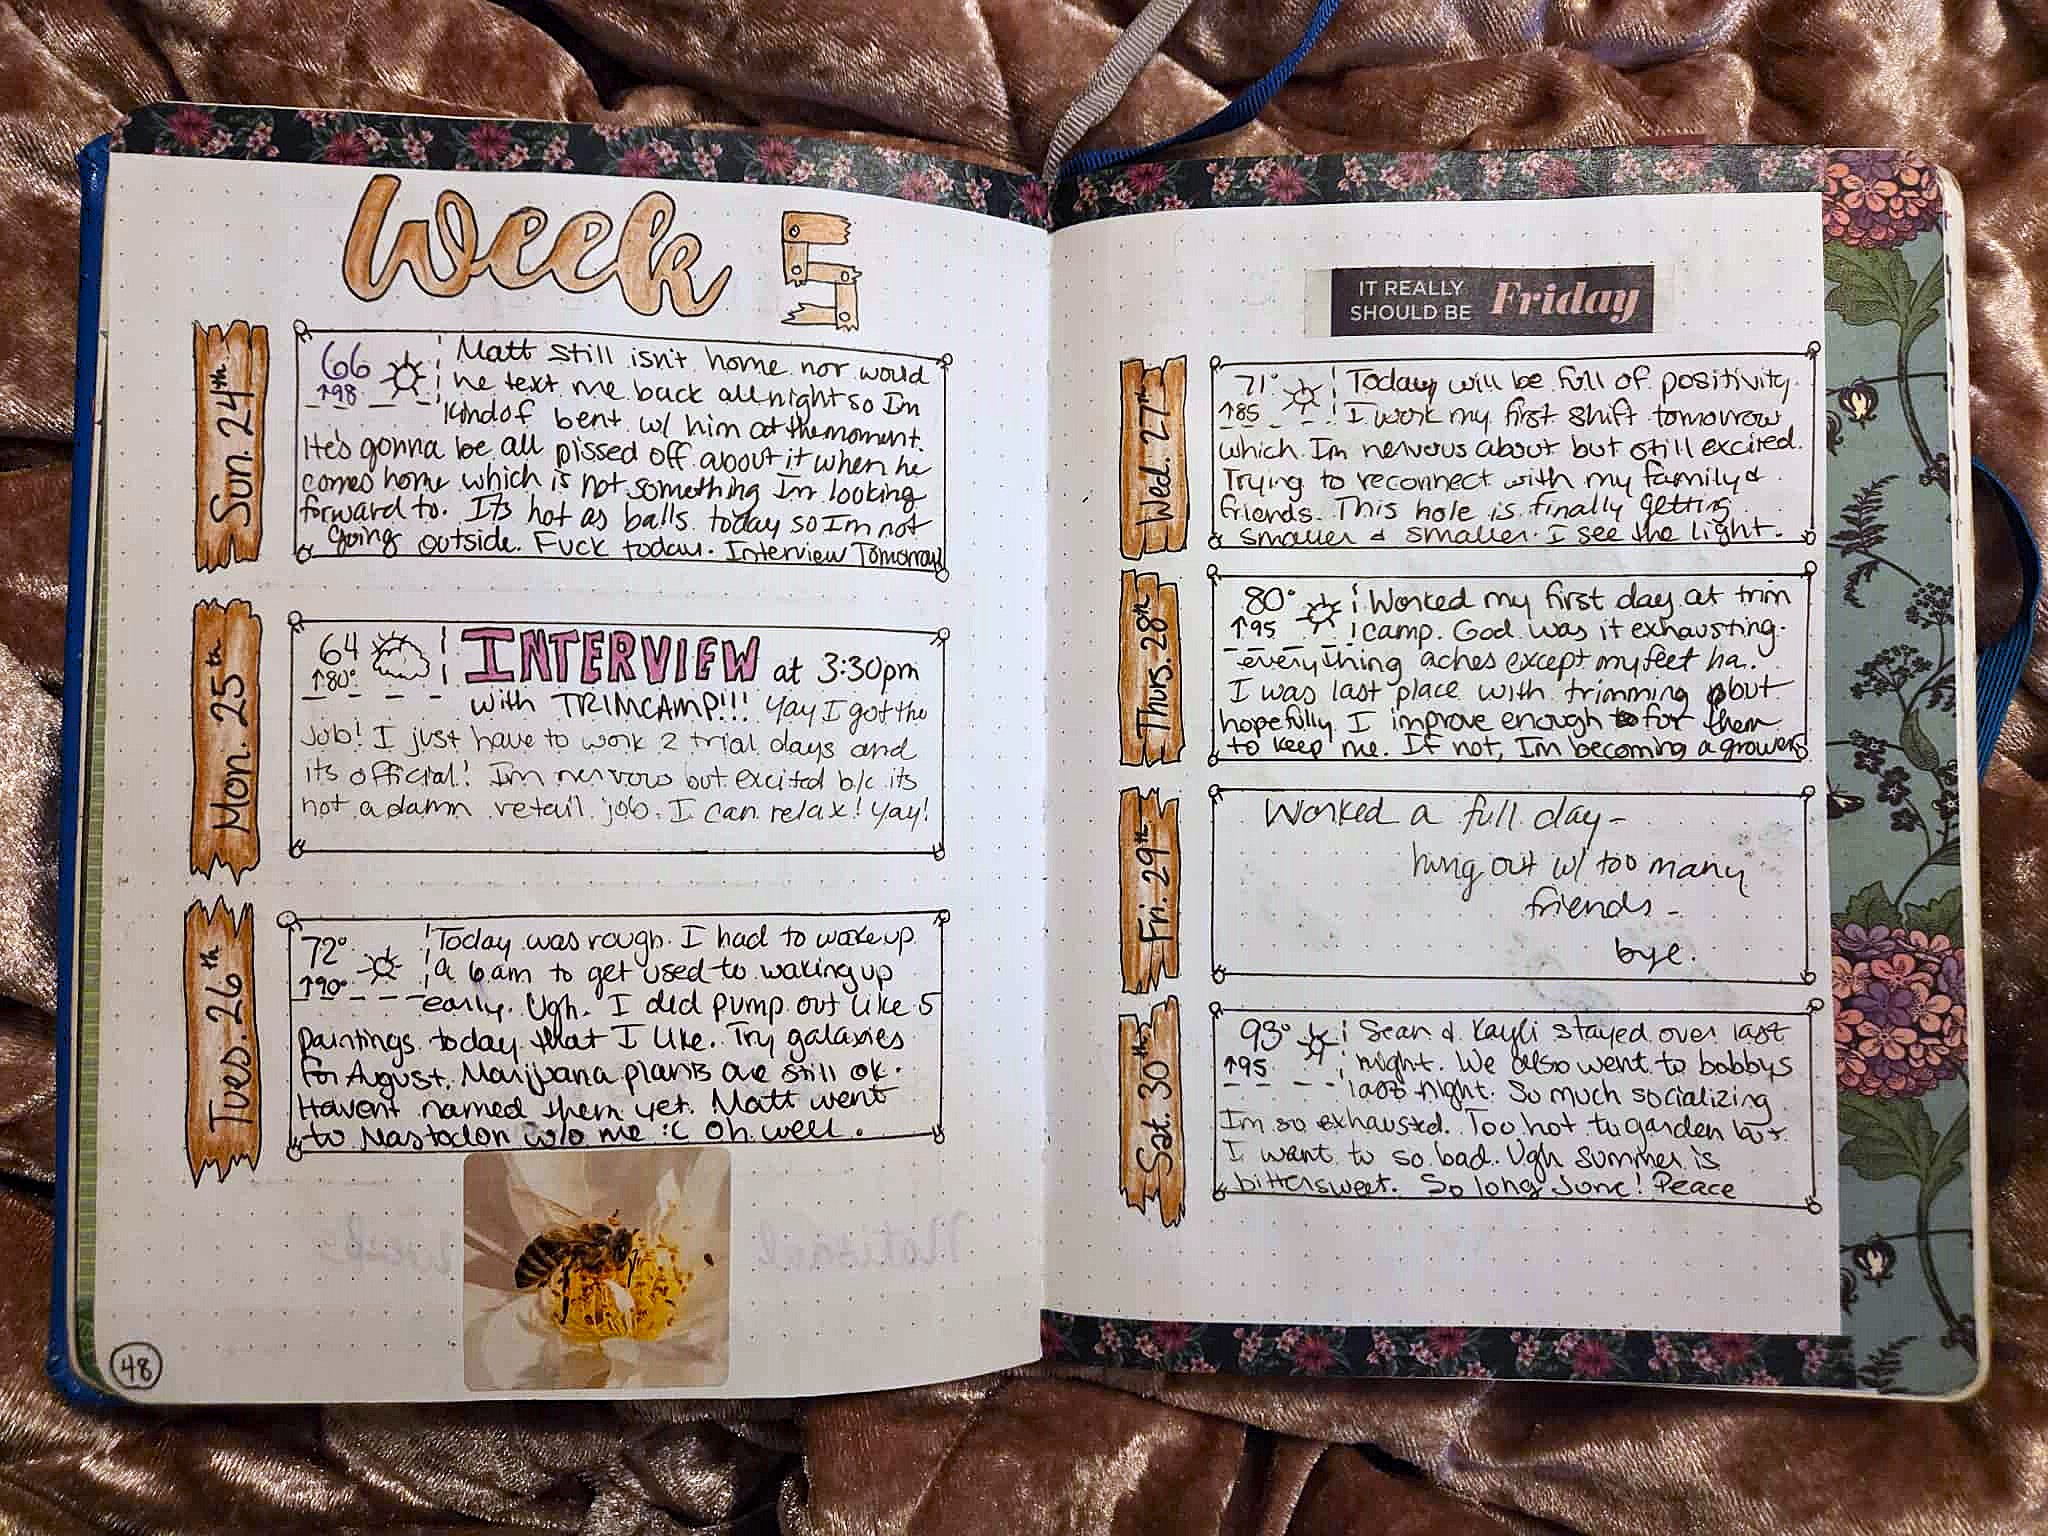 Week 5
Sun. 24th
66
↑98
Matt still isn't home nor would
he text me back all night so Im
kind of bent w/ him at the moment.
He's gonna be all pissed off about it when he
comes home which is not something Im looking
forward to. Its hot as balls today so Im not
going outside. Fuck today. Interview Tomorrow
Mon. 25th
64
↑80°
INTERVIEW at 3:30pm
with TRIMCAMP!!! Yay I got the
job! I just have to work 2 trial days and
its official! Im nervous but excited b/c its
not a damn retail job. I can relax! Yay!
Tues. 26th
72°
↑90°
Today was rough. I had to wake up
a 6am to get used to waking up
early. Ugh. I did pump out like 5
paintings today that I like. Try galaxies
for August. Marijuana plants are still ok.
Havent named them yet. Matt went
to Mastodon w/o me :c Oh well.
National week
48
IT REALLY
SHOULD BE Friday
Wed. 27th
71°
↑85
Today will be full of positivity.
I work my first shift tomorrow
which Im nervous about but still excited.
Trying to reconnect with my family &
friends. This hole is finally getting
smaller & smaller. I see the light.
Thurs. 28th
80°
↑95
Worked my first day at trim
camp. God was it exhausting.
everything aches except my feet ha.
I was last place with trimming but
hopefully I improve enough for them
to keep me. If not, Im becoming a grower
Fri. 29th
Worked a full day-
hung out w/ too many
friends-
bye.
Sat. 30th
93°
↑95
Sean & Kayli stayed over last
night. We also went to bobbys
last night. So much socializing
Im so exhausted. Too hot to garden but
I want to so bad. Ugh summer is
bittersweet. So long June! Peace